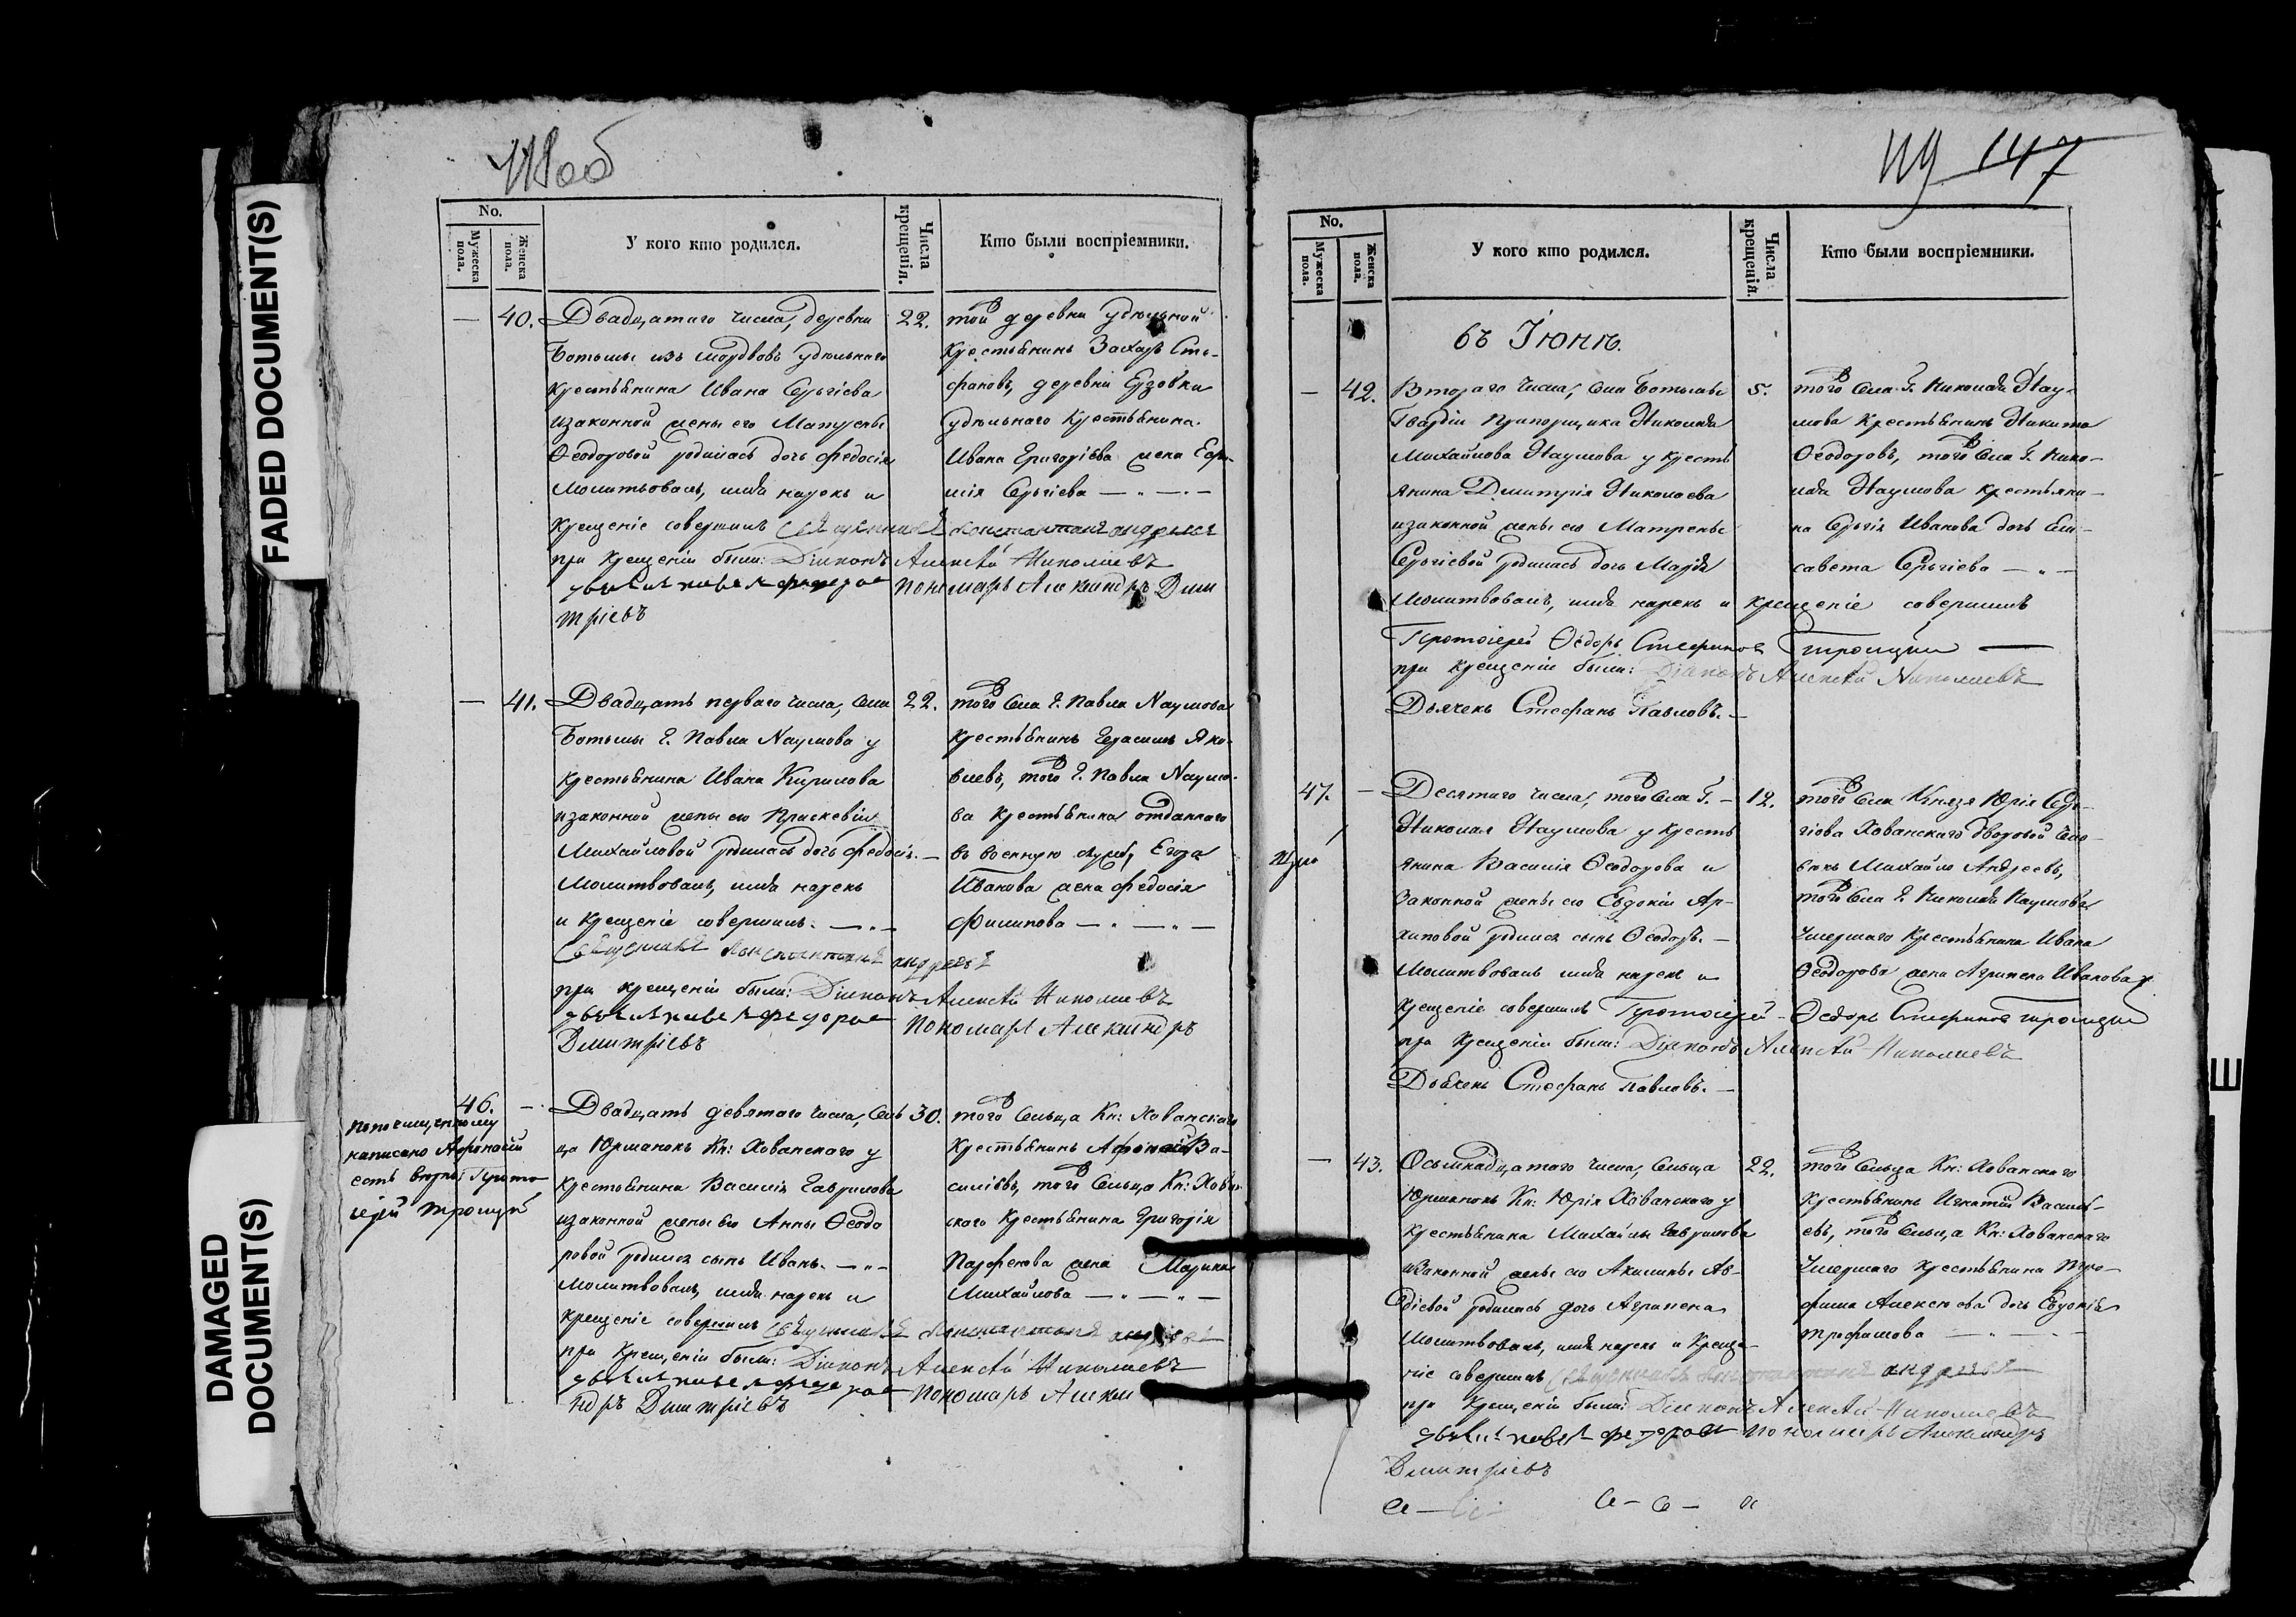 FADED DOCUMENT(S)
DAMAGED
DOCUMENT(S)
об
No.
Мужеска пола.
Женска пола.
У кого кто родился.
Числа крещенія.
Кто были воспріемники.
— 40.
Двадцатаго числа, деревни
Ботьмы изъ мордвовъ удѣльнаго
крестьянина Ивана Сергіева
и законной жены его Матрены
Ѳеодоровой родилась дочь Федосія
Молитвовалъ, имя нарекъ и
крещеніе совершилъ Священникъ Константинъ Андреевъ
при крещеніи были: Діаконъ Алексѣй Николаевъ
Пономарь Александръ Дми
тріевъ
22.
той деревни удѣльной
крестьянинъ Захаръ Сте-
фановъ, деревни Ерзовки
удѣльнаго крестьянина
Ивана Григоріева жена Ефи-
мія Сергіева
— 41.
Двадцать перваго числа, села
Ботьмы Г. Павла Наумова у
крестьянина Ивана Кирилова
и законной жены его Праскевіи
Михайловой родилась дочь Федосія. —
Молитвовалъ, имя нарекъ
и крещеніе совершилъ. —
Священникъ Константинъ Андреевъ
при крещеніи были: Діаконъ Алексѣй Николаевъ
Пономарь Александръ
Дмитріевъ
22.
того села Г. Павла Наумова
крестьянинъ Герасимъ Яко-
влевъ, того Г. Павла Наумо-
ва крестьянина отданнаго
въ военную службу Егора
Иванова жена Федосія
Филипова
46. —
написано Афонасій
есть вѣрно, Прото-
іерей Троицкій
Двадцать девятаго числа, Сель
ца Юрманокъ Кн: Хованскаго у
крестьянина Василія Гаврилова
и законной жены его Анны Ѳеодо
ровой родился сынъ Иванъ. —
Молитвовалъ, имя нарекъ и
крещеніе совершилъ Священникъ Константинъ Андреевъ
при крещеніи были: Діаконъ Алексѣй Николаевъ
Пономарь Алекса
ндръ Дмитріевъ
30.
того Сельца Кн: Хованскаго
крестьянинъ Афонасій Ва-
силіевъ, того Сельца Кн: Хован-
скаго крестьянина Григорія
Парфенова жена Марина
Михайлова
119 147
No.
Мужеска пола.
Женска пола.
У кого кто родился.
Числа крещенія.
Кто были воспріемники.
въ Іюнѣ.
— 42.
Втораго числа, села Ботьмы
Гвардіи Прапорщика Николая
Михайлова Наумова у кресть
янина Дмитрія Николаева
и законной жены его Матрены
Сергіевой родилась дочь Марія
Молитвовалъ, имя нарекъ и крещеніе совершилъ
Протоіерей Ѳедоръ Стефановъ Троицкій —
при крещеніи были: Діаконъ Алексѣй Николаевъ
Дьячекъ Стефанъ Павловъ. —
5.
того села Г. Николая Нау-
мова крестьянинъ Никита
Ѳеодоровъ, того села Г. Нико-
лая Наумова крестьяни-
на Сергія Иванова дочь Ели-
савета Сергіева
47. —
Десятаго числа, того села Г. —
Николая Наумова у кресть
янина Василія Ѳеодорова и
законной жены его Евдокіи Ар-
хиповой родился сынъ Ѳеодоръ. —
Молитвовалъ имя нарекъ и
крещеніе совершилъ Протоіерей Ѳедоръ Стефановъ Троицкій
при крещеніи были: Діаконъ Алексѣй Николаевъ
Дьячекъ Стефанъ Павловъ. —
12.
того села Князя Юрія Сер-
гіева Хованскаго дворовой чело-
вѣкъ Михайло Андреевъ,
того села Г. Николая Наумова
умершаго крестьянина Ивана
Ѳеодорова жена Агрипена Иванова
— 43.
Осьмнадцатаго числа, Сельца
Юрманокъ Кн: Юрія Хованскаго у
крестьянина Михайлы Гаврилова
и законной жены его Акилины Ав-
дѣевой родилась дочь Агрипена
Молитвовалъ, имя нарекъ и креще-
ніе совершилъ Священникъ Константинъ Андреевъ
при крещеніи были: Діаконъ Алексѣй Николаевъ
Пономарь Александръ
Дмитріевъ
22.
того Сельца Кн: Хованскаго
крестьянинъ Игнатій Василь-
евъ, того Сельца Кн: Хованскаго
умершаго крестьянина Тро-
фима Алексѣева дочь Евдокія
Трофимова